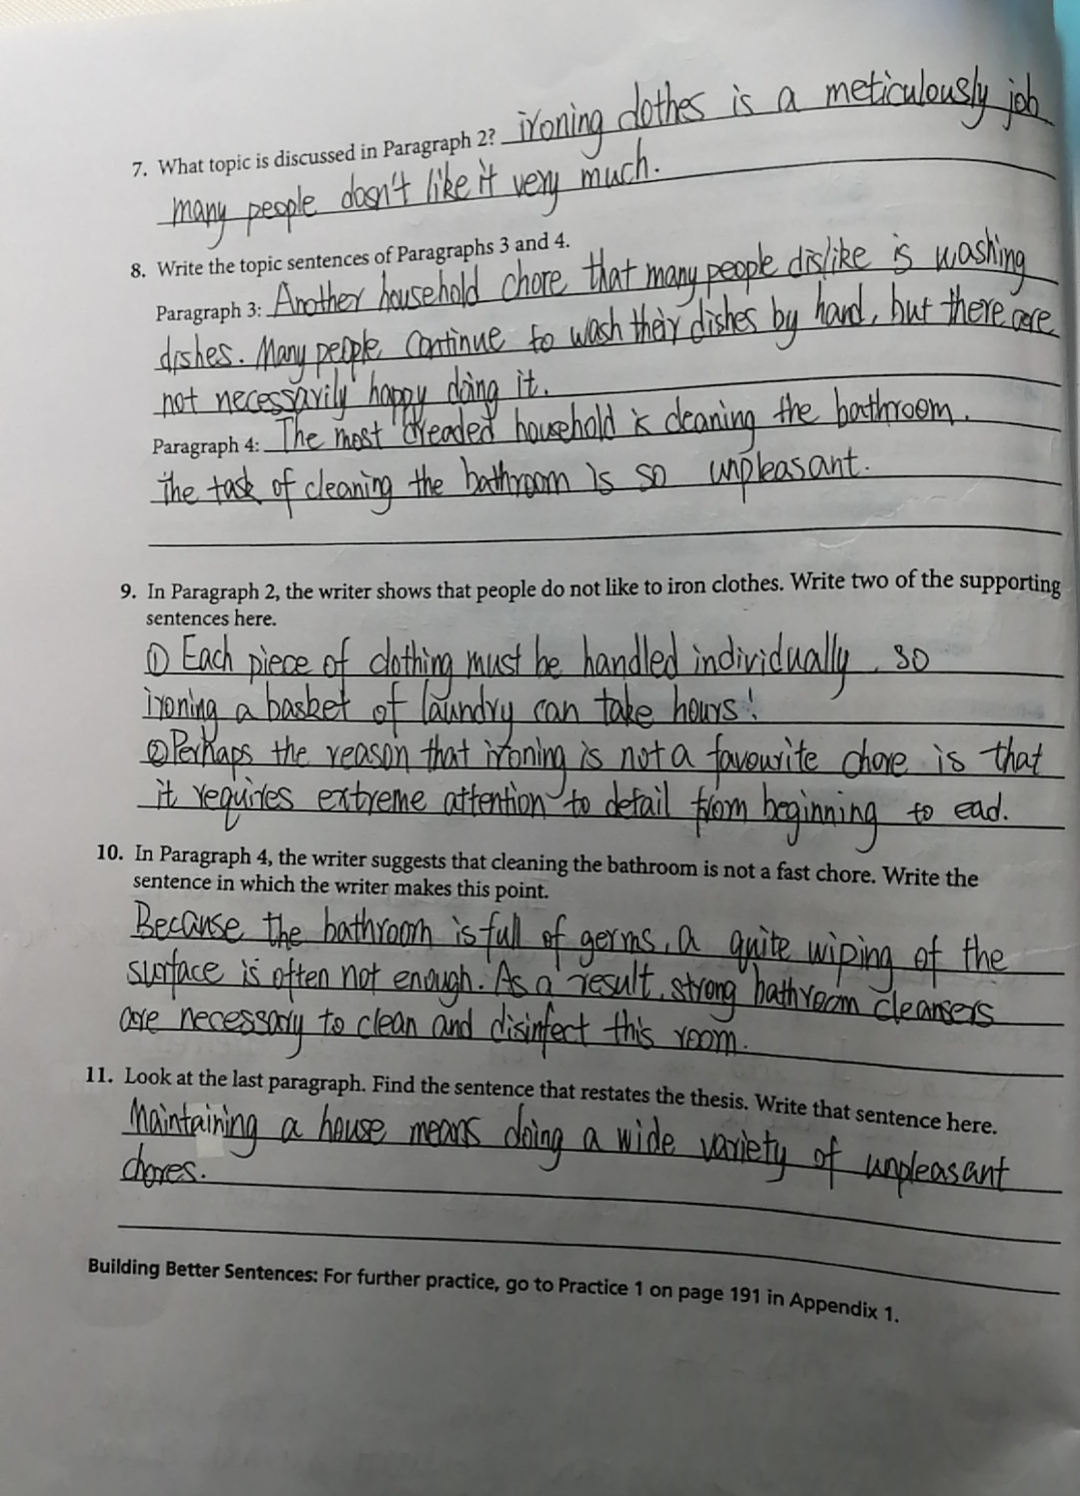 7. What topic is discussed in Paragraph 2? ironing clothes is a meticulously job
many people dosn't like it very much.
8. Write the topic sentences of Paragraphs 3 and 4.
Paragraph 3: Another household chore that many people dislike is washing
dishes. Many people continue to wash their dishes by hand, but there are
not necessarily happy doing it.
Paragraph 4: The most dreaded household is cleaning the bathroom.
The task of cleaning the bathroom is so unpleasant.
9. In Paragraph 2, the writer shows that people do not like to iron clothes. Write two of the supporting
sentences here.
① Each piece of clothing must be handled individually, so
ironing a basket of laundry can take hours!
② Perhaps the reason that ironing is not a favourite chore is that
it requires extreme attention to detail from beginning to ead.
10. In Paragraph 4, the writer suggests that cleaning the bathroom is not a fast chore. Write the
sentence in which the writer makes this point.
Because the bathroom is full of germs, a quite wiping of the
surface is often not enough. As a result, strong bathroom cleansers
are necessary to clean and disinfect this room.
11. Look at the last paragraph. Find the sentence that restates the thesis. Write that sentence here.
Maintaining a house means doing a wide variety of unpleasant
chores.
Building Better Sentences: For further practice, go to Practice 1 on page 191 in Appendix 1.